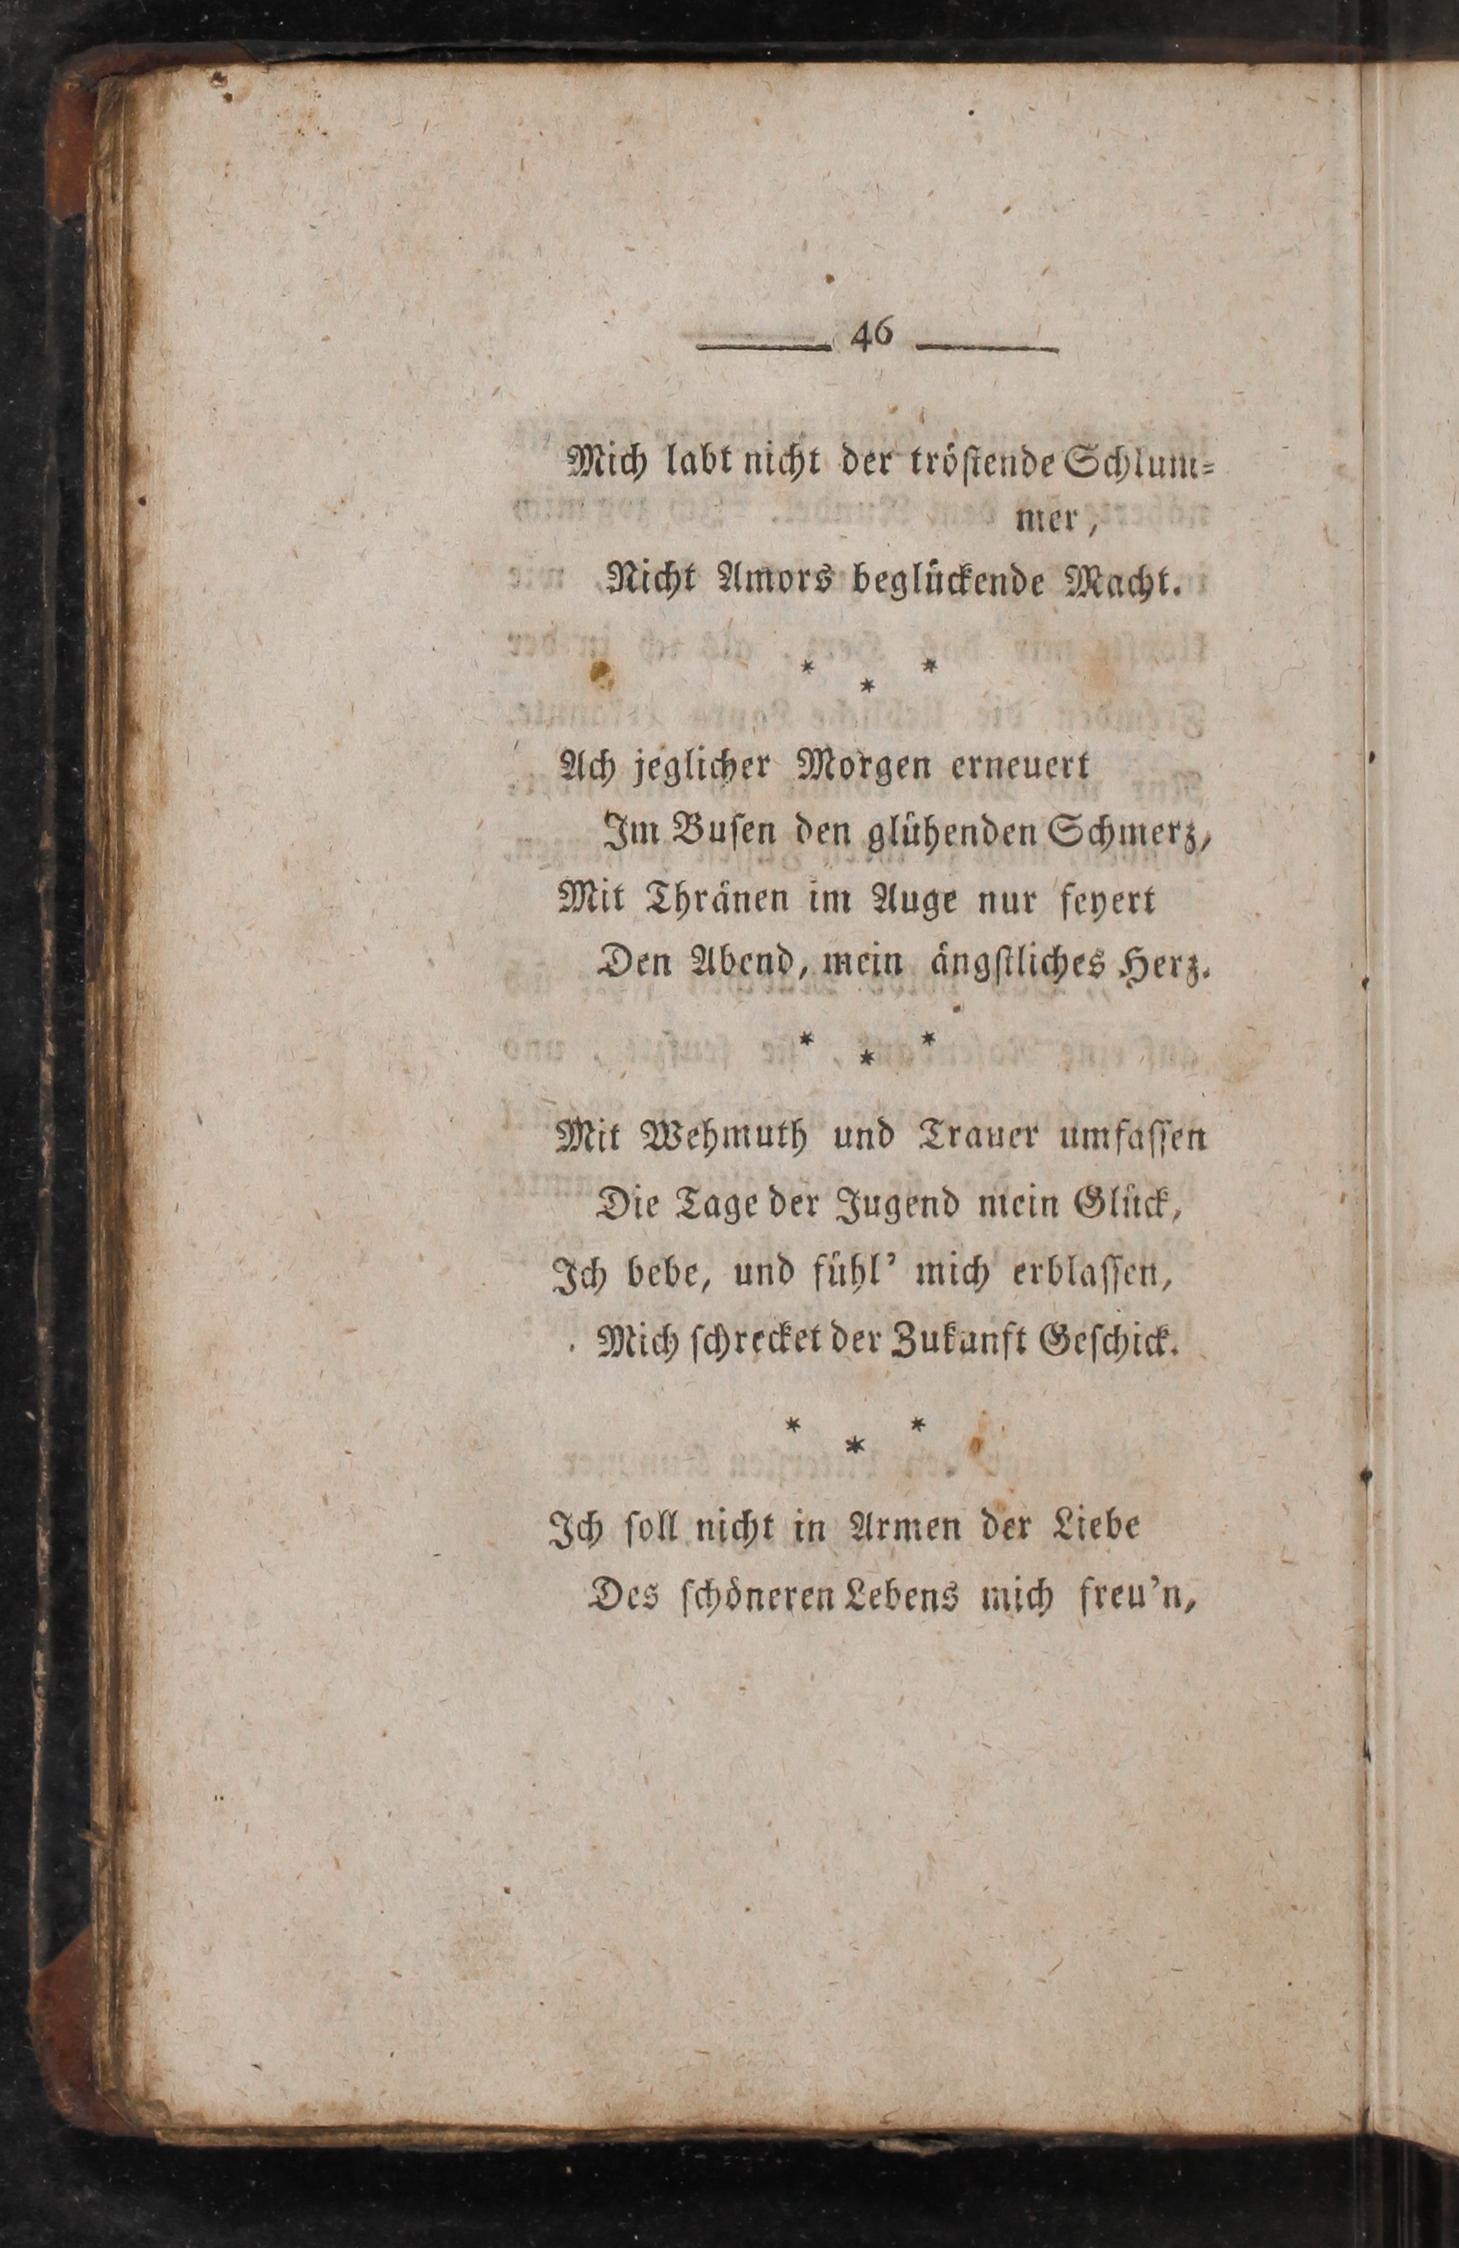 46
Mich labt nicht der tröſtende Schlum⸗
mer,
Nicht Amors beglückende Macht.
* * *
Ach jeglicher Morgen erneuert
Im Buſen den glühenden Schmerz,
Mit Thränen im Auge nur feyert
Den Abend, mein ängſtliches Herz.
* * *
Mit Wehmuth und Trauer umfaſſen
Die Tage der Jugend mein Glück,
Ich bebe, und fühl’ mich erblaſſen,
Mich ſchrecket der Zukunft Geſchick.
* * *
Ich ſoll nicht in Armen der Liebe
Des ſchöneren Lebens mich freu’n,